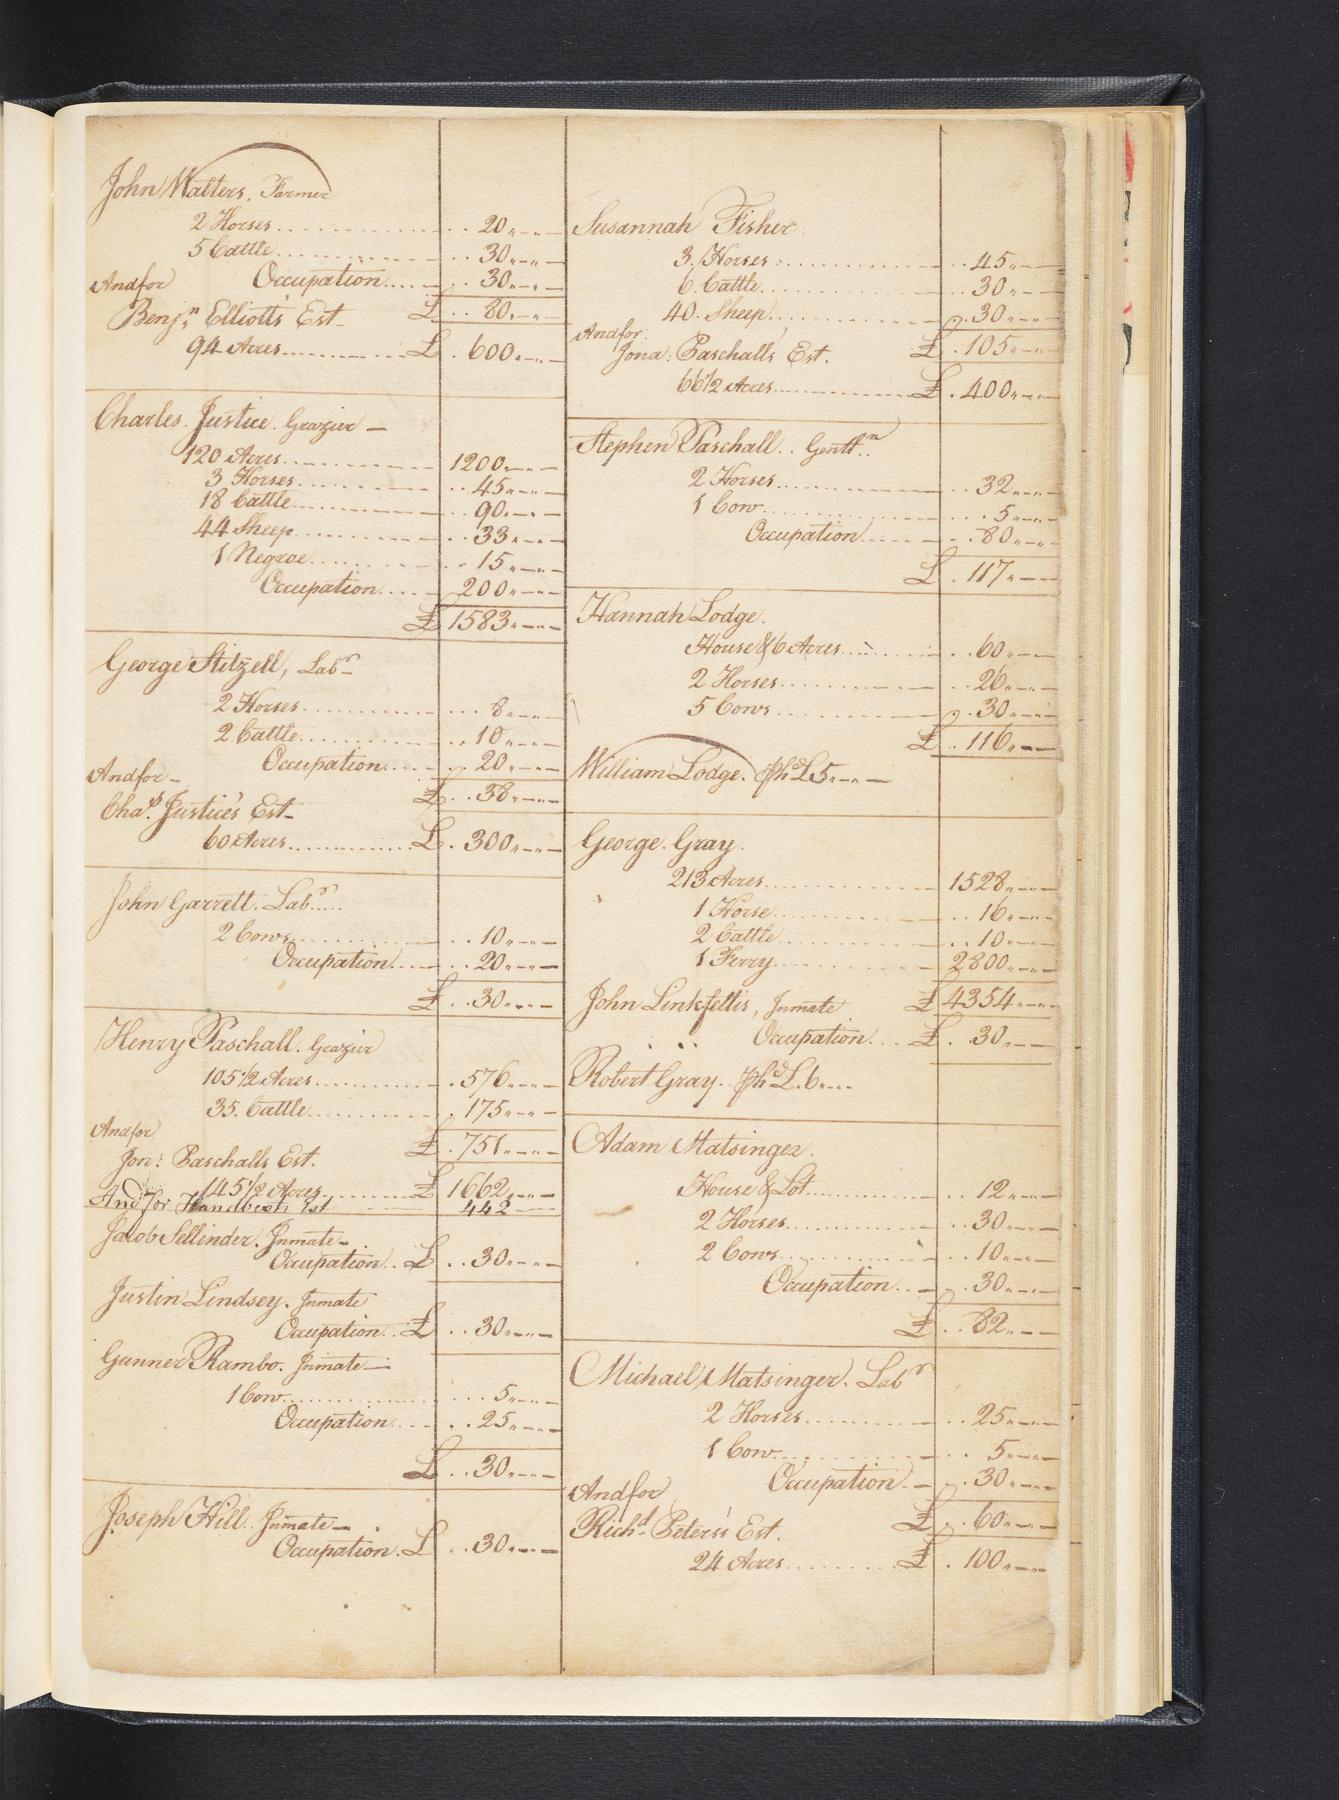 John Walters, Farmer
2 Horses 20
5 Cattle 30
And for Occupation 30
Benjn Elliott's Est £ 80
94 Acres £ 600
Charles Justice. Grazier
120 Acres 1200
3 Horses 45
18 Cattle 90
44 Sheep 33
1 Negroe 15
Occupation 200
£ 1583
George Stitzell, Labr
2 Horses 8
2 Cattle 10
Occupation 20
And for £ 38
Chas. Justice's Est
60 Acres £ 300
John Garrett. Labr
2 Cows 10
Occupation 20
£ 30
Henry Paschall. Grazier
105 1/2 Acres 576
35. Cattle 175
And for £ 751
Jon: Paschalls Est.
145 1/2 Acres £ 1662
And for Est 442
Jacob Sellinder. Inmate
Occupation £ 30
Justin Lindsey. Inmate
Occupation £ 30
Gunner Rambo. Inmate
1 Cow 5
Occupation 25
£ 30
Joseph Hill. Inmate
Occupation. £ 30
Susannah Fisher
3. Horses 45
6. Cattle 30
40. Sheep 30
And for £ 105
Jona: Paschalls Est.
66 1/2 Acres £ 400
Stephen Paschall. Gentln
2 Horses 32
1 Cow 5
Occupation 80
£ 117
Hannah Lodge.
House & 6 Acres 60
2 Horses 26
5 Cows 30
£ 116
William Lodge. Phd £5
George Gray.
213 Acres 1528
1 Horse 16
2 Cattle 10
1 Ferry 2800
£ 4354
John Linkfettis, Inmate
Occupation £ 30
Robert Gray. Phd £.6
Adam Matsinger.
House & Lot 12
2 Horses 30
2 Cows 10
Occupation 30
£ 82
Michael Matsinger. Labr
2 Horses 25
1 Cow 5
Occupation 30
And for £ 60
Richd Peters's Est.
24 Acres £ 100